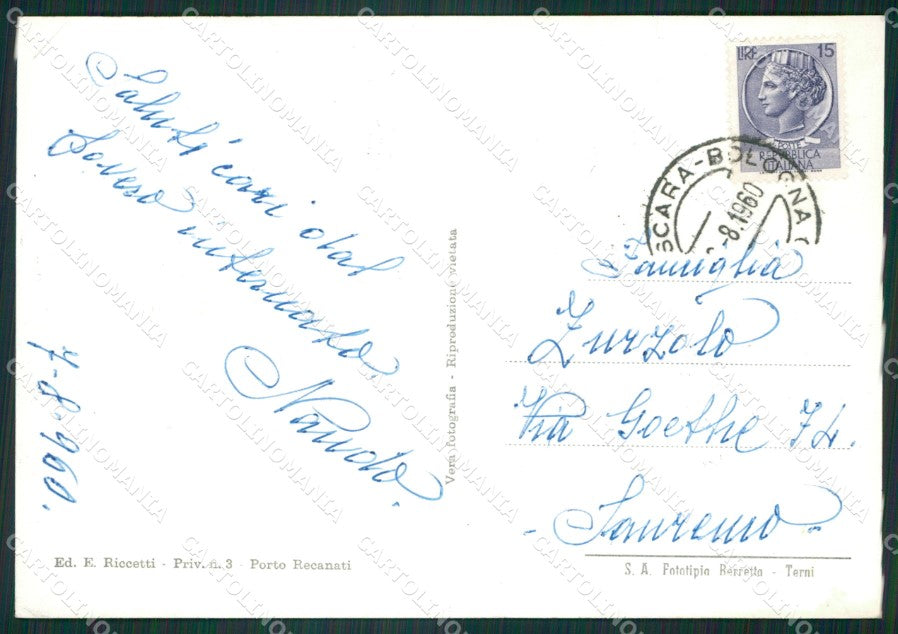 LIRE 15
POSTE
REPUBBLICA
ITALIANA
SCARA-BOLOGNA
-8.1960
Saluti cari dal
Vera fotografia - Riproduzione vietata
7-8-960.
Famiglia
Zurzolo
Via Goethe 74.
- Sanremo -
Ed. E. Riccetti - Priv. n. 3 - Porto Recanati
S. A. Fototipia Berretta - Terni
CARTOLINOMANIA